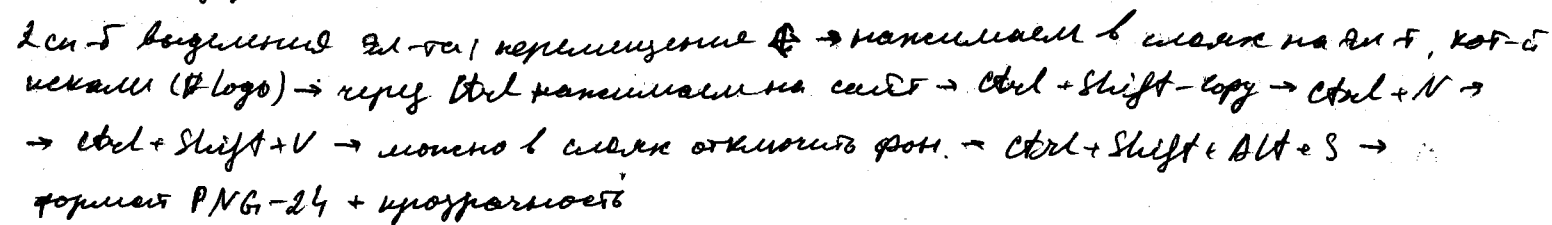 2 сп-б выделения эл-та, перемещение → нажимаем в слоях на эл-т, кот-й
искали (# logo) → через Ctrl нажимаем на слой → Ctrl + Shift - Copy → Ctrl + N →
→ Ctrl + Shift + V → можно в слоях отключить фон. → Ctrl + Shift + Alt + S →
формат PNG-24 + прозрачность